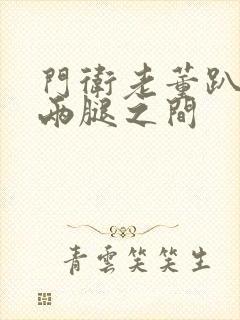 門衛老董趴
兩腿之間
青雲笑笑生